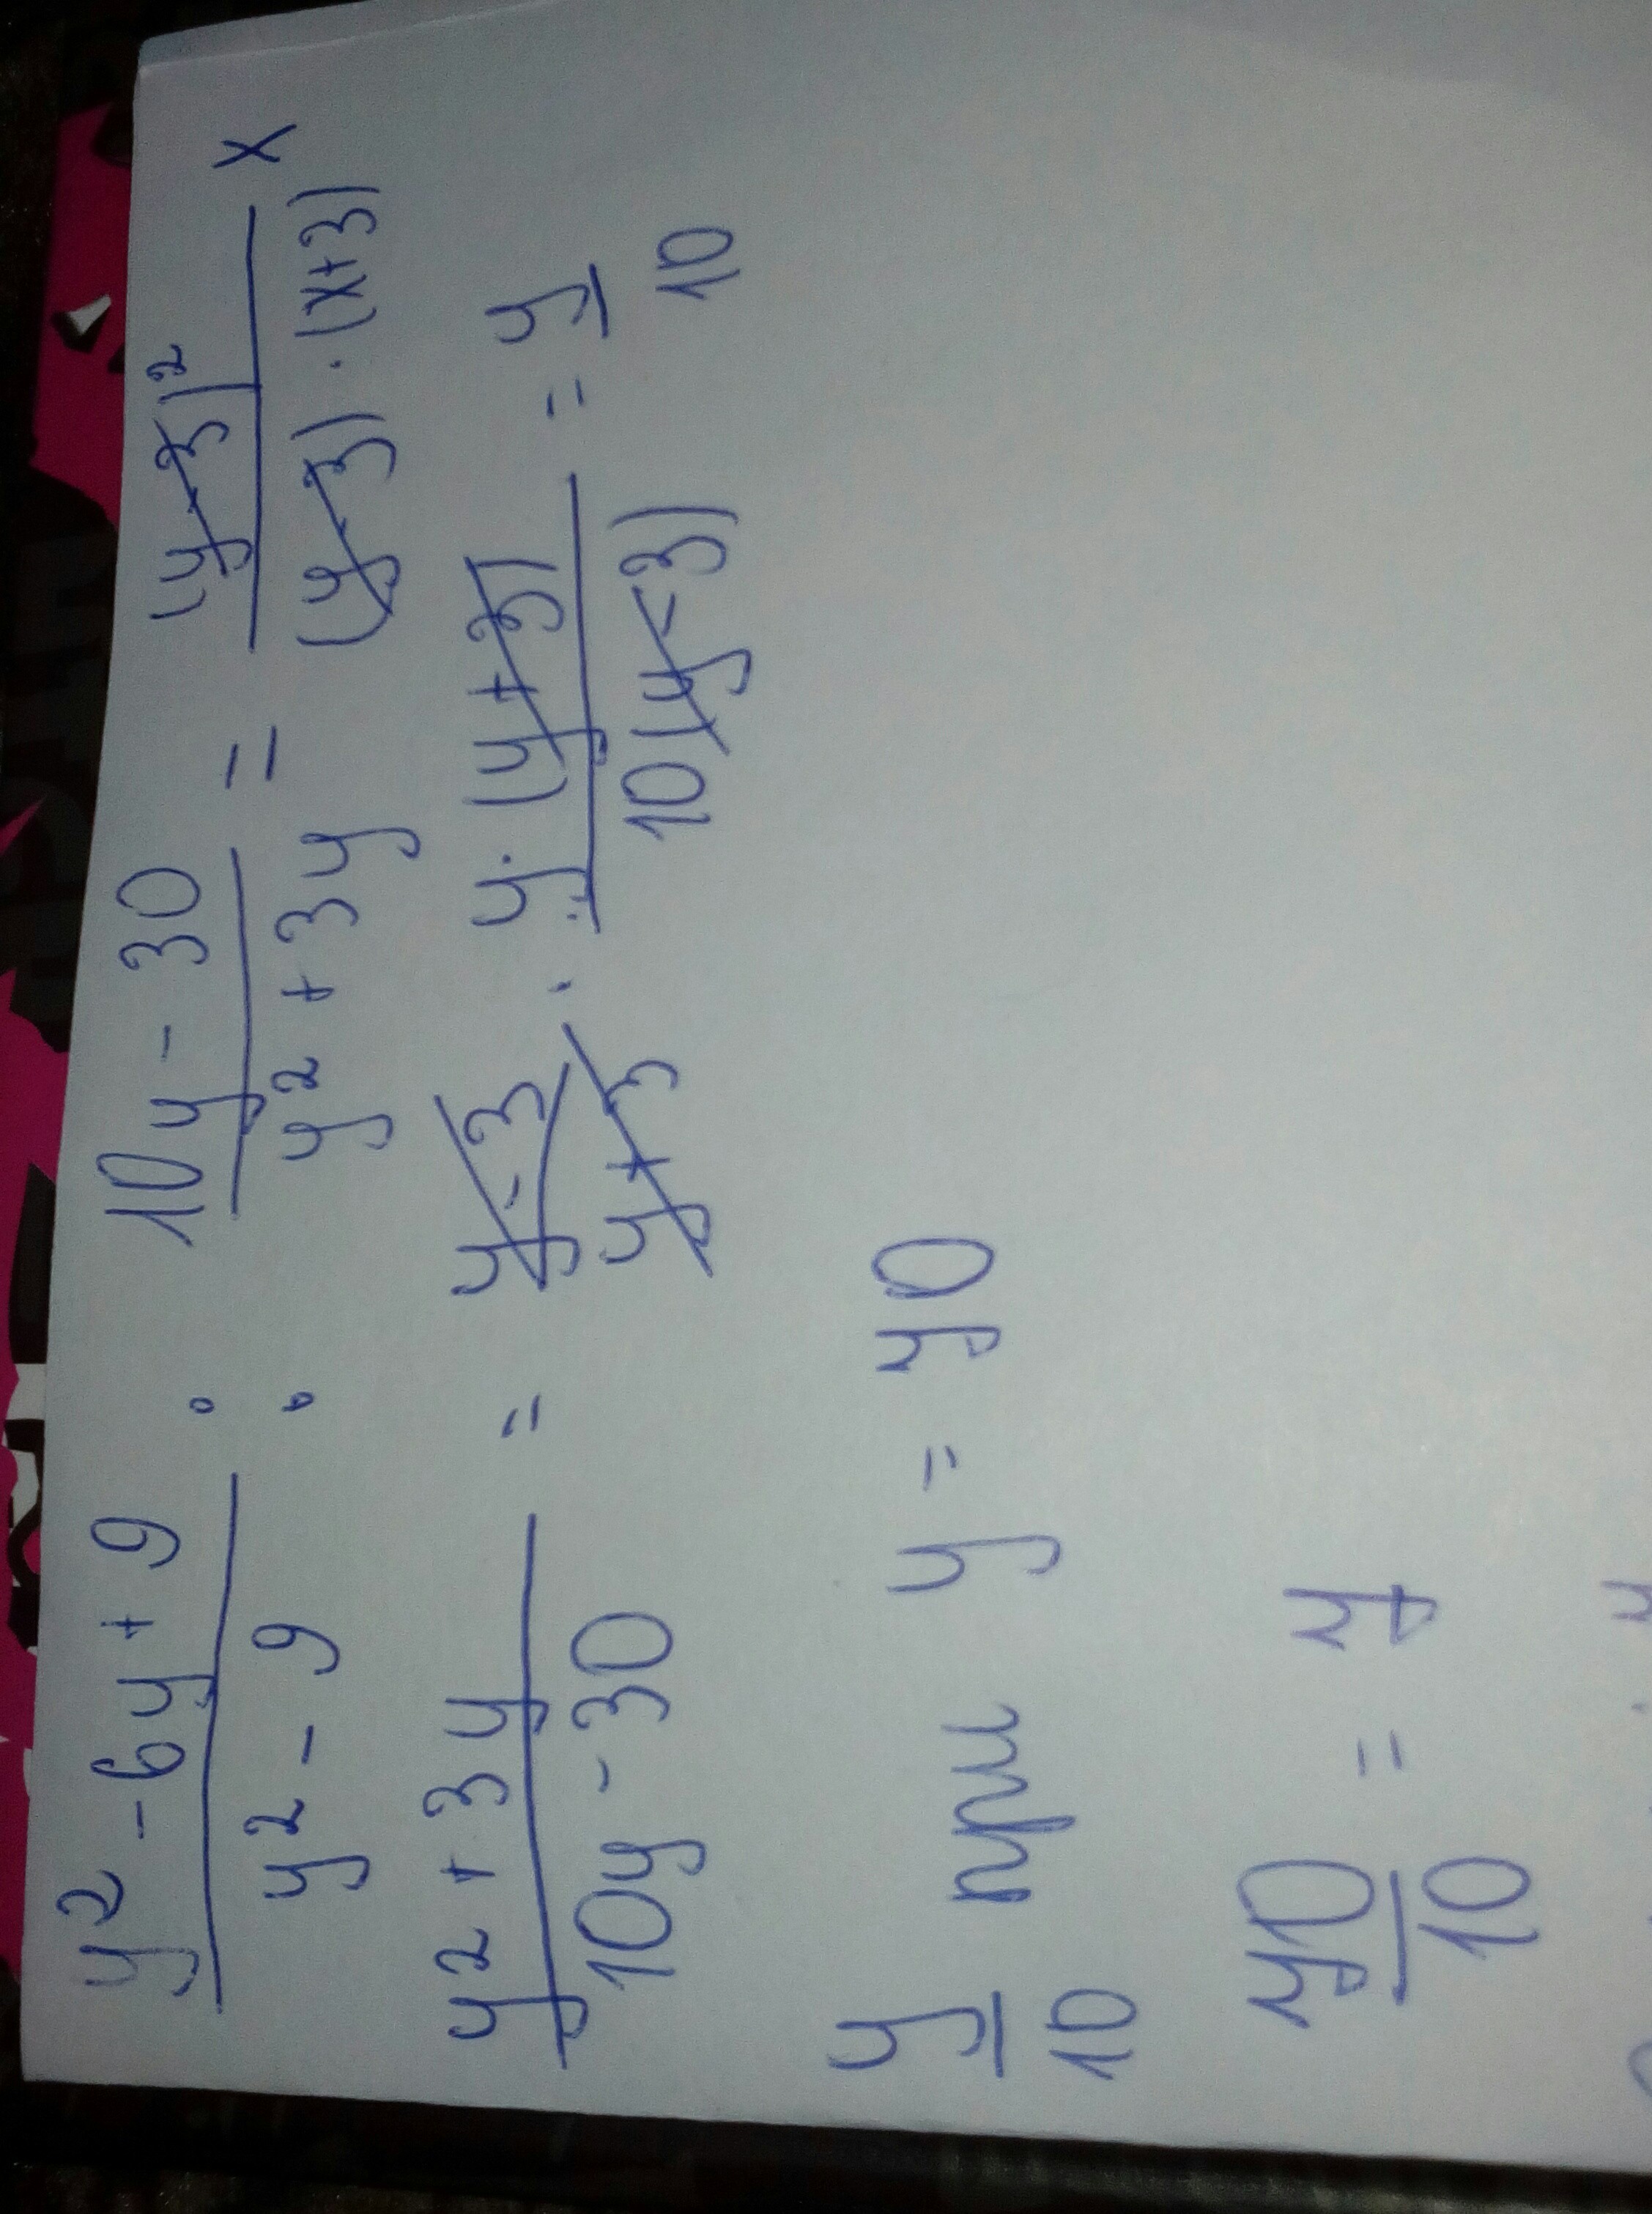 (y² - 6y + 9)/(y² - 9) : (10y - 30)/(y² + 3y) = (y-3)²/((y-3)·(x+3)) ×
(y² + 3y)/(10y - 30) = (y-3)/(y+3) · y·(y+3)/(10(y-3)) = y/10
y/10 при y = y0
y10/10 = y